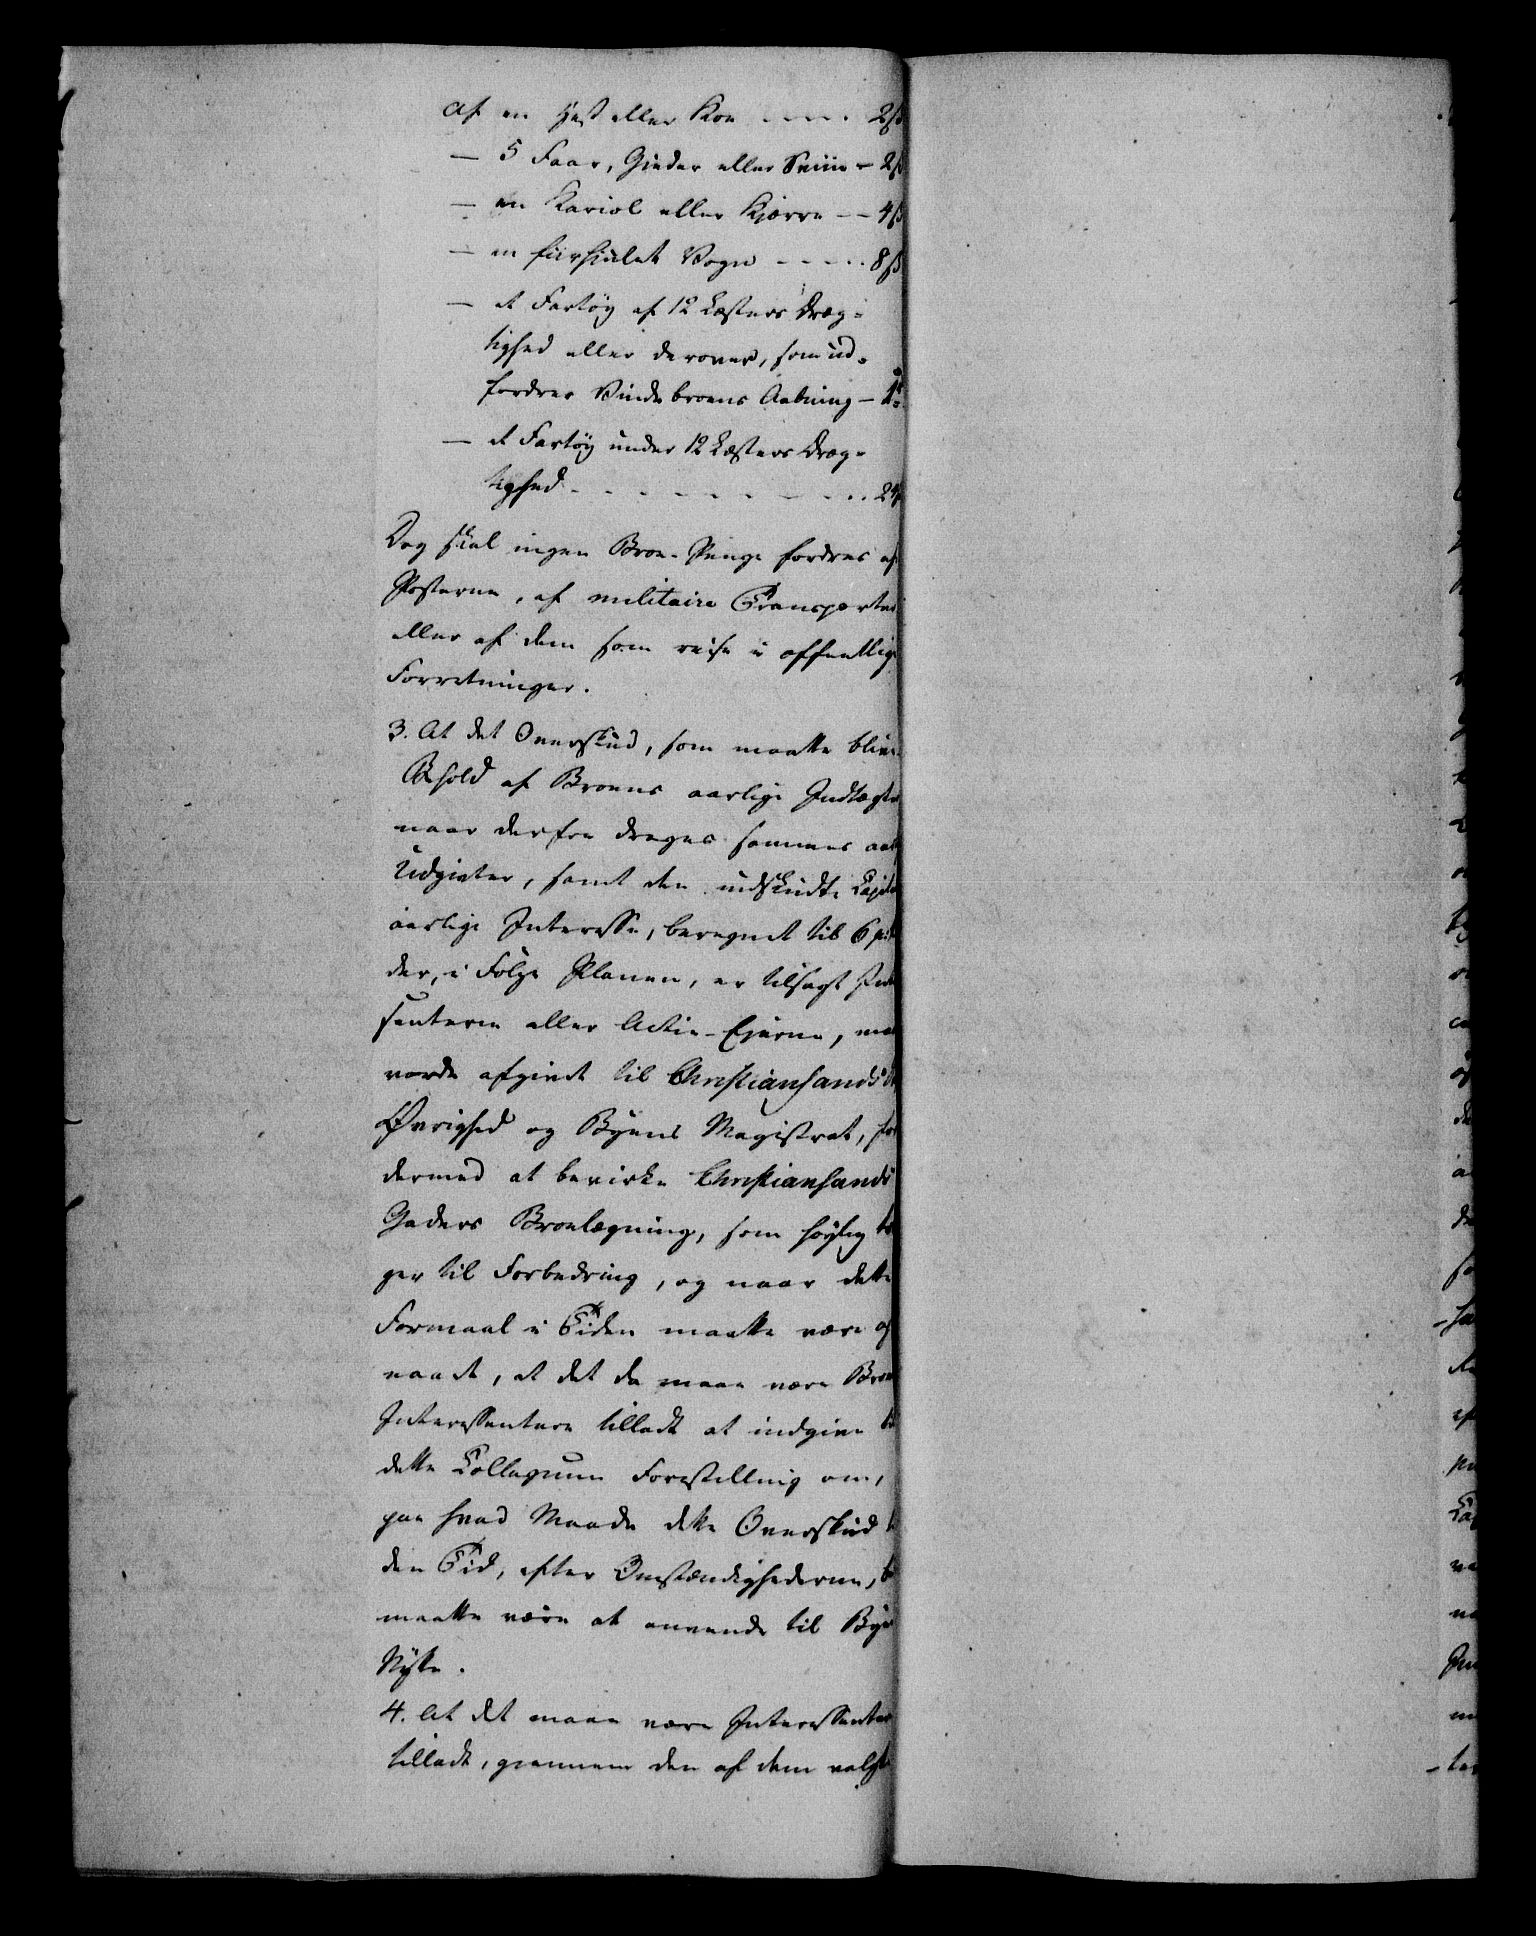 Af en Hest eller Koe - - - - 2 ß
— 5 Faar, Gieder eller Sviin - 2 ß
— en Kariol eller Kjærre - - 4 ß
— en fiirhiulet Vogn - - - - 8 ß
— et Fartøy af 12 Læsters Dræg-
tighed eller derover, som ud-
fordrer Vindebroens Aabning -
— et Fartøy under 12 Læsters Dræg-
tighed - - - - - - - - - 24 ß
Dog skal ingen Broe-Penge fordres af
Posterne, af militaire Transporter
eller af dem som reise i offentlige
Forretninger.
3. At det Overskud, som maatte blive
Behold af Broens aarlige Indtægter
naar derfra drages sammes
Udgivter, samt den indskudte
aarlige Interesse, beregnet til 6
der, i Følge Planen, er tilsagt
senterne eller Actie-Eierne, maa
vorde afgivet til Christiansands
Øvrighed og Byens Magistrat, for
dermed at bevirke Christiansands
Gaders Broelægning, som høylig
ger til Forbedring, og naar dette
Formaal i Tiden maatte være op
naaet, at det da maae være Broe
Interessentere tilladt at indgive
dette Collegium Forestilling om,
paa hvad Maade dette Overskud
den Tid, efter Omstændighederne,
maatte være at anvende til Byens
Nytte.
4. At det maae være Interessenter
tilladt, giennem den af dem valgte